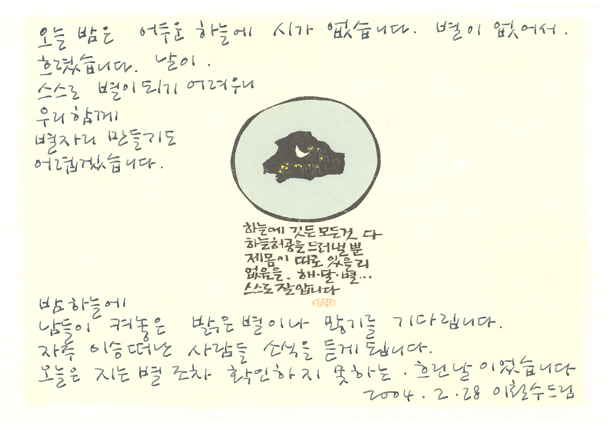 오늘 밤은 어두운 하늘에 시가 없습니다. 별이 없어서.
흐렸습니다. 날이.
스스로 별이 되기 어려우니
우리 함께
별자리 만들기도
어렵겠습니다.
하늘에 깃든 모든것 다
하늘허공을 드러낼 뿐
제몸이 따로 있을 리
없음을. 해·달·별…
스스로 잘 압니다
밤하늘에
남들이 켜놓은 밝은 별이나 맑기를 기다립니다.
자주 이승떠난 사람들 소식을 듣게 됩니다.
오늘은 지는 별 조차 확인하지 못하는. 흐린 날이었습니다
2004. 2. 28 이철수 드림